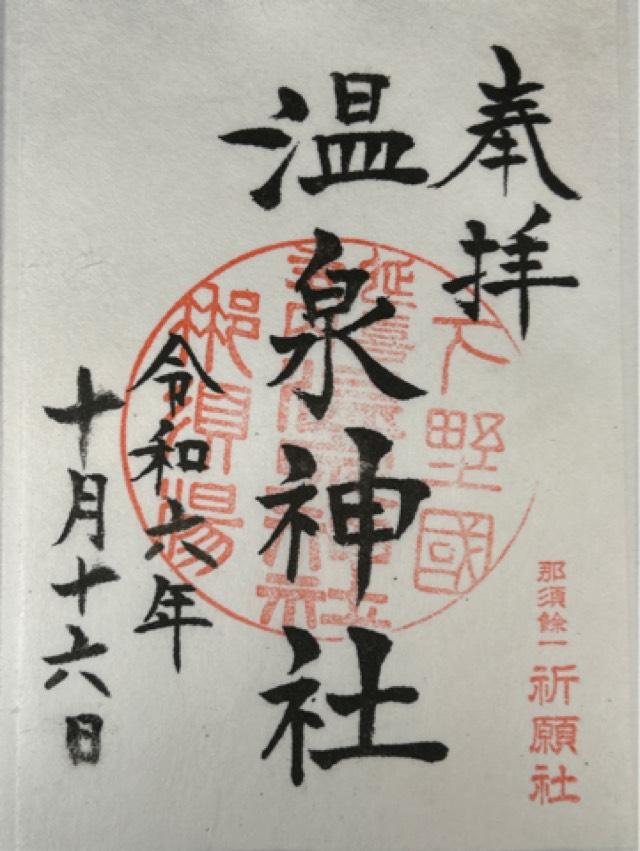 奉拝
下野國
延喜式内
温泉神社
温泉神社
那須湯
令和六年
十月十六日
那須餘一
祈願社